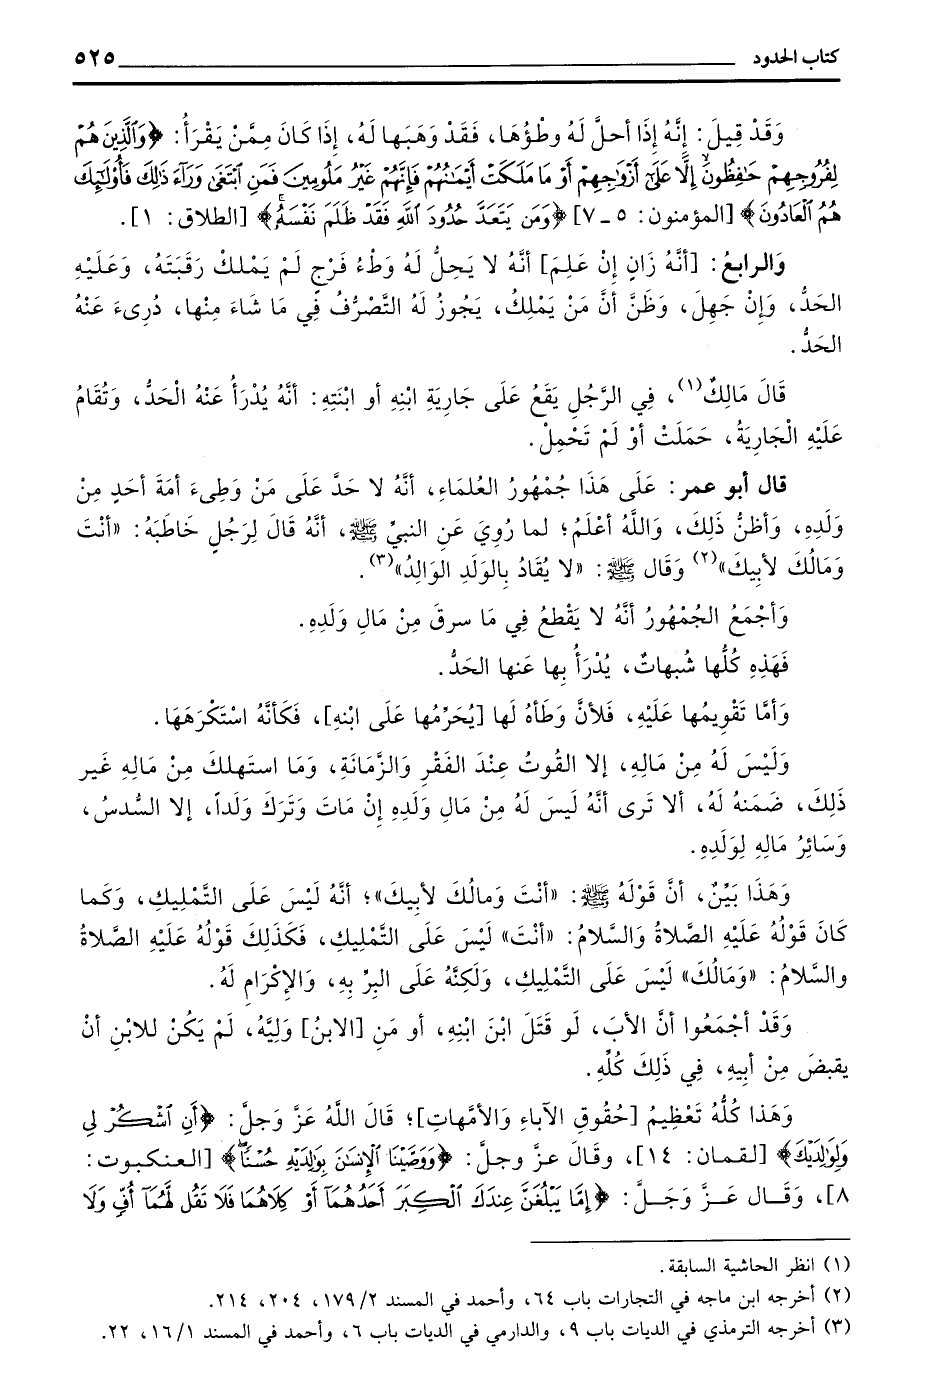 كتاب الحدود ٥٢٥
وَقَدْ قِيلَ: إِنَّهُ إِذَا أحلَّ لَهُ وطْؤُهَا، فَقَدْ وَهَبَها لَهُ، إِذَا كَانَ مِمَّنْ يَقْرَأُ: ﴿وَٱلَّذِينَ هُمْ
لِفُرُوجِهِمْ حَٰفِظُونَۙ إِلَّا عَلَىٰٓ أَزْوَٰجِهِمْ أَوْ مَا مَلَكَتْ أَيْمَٰنُهُمْ فَإِنَّهُمْ غَيْرُ مَلُومِينَ فَمَنِ ٱبْتَغَىٰ وَرَآءَ ذَٰلِكَ فَأُوْلَٰٓئِكَ
هُمُ ٱلْعَادُونَ﴾ [المؤمنون: ٥ ـ ٧] ﴿وَمَن يَتَعَدَّ حُدُودَ ٱللَّهِ فَقَدْ ظَلَمَ نَفْسَهُۥۚ﴾ [الطلاق: ١].
وَالرابعُ: [أنَّهُ زَانٍ إِنْ عَلِمَ] أنَّهُ لا يَحِلُّ لَهُ وَطْءُ فَرْجٍ لَمْ يَمْلكْ رَقَبَتَهُ، وَعَلَيْهِ
الحَدُّ، وَإِنْ جَهِلَ، وَظَنَّ أنَّ مَنْ يَمْلِكُ، يَجُوزُ لَهُ التَّصَرُّفُ فِي مَا شَاءَ مِنْها، دُرِىءَ عَنْهُ
الحَدُّ.
قَالَ مَالِكٌ(١)، فِي الرَّجُلِ يَقَعُ عَلَى جَارِيَةِ ابْنِهِ أو ابْنَتِهِ: أنَّهُ يُدْرَأُ عَنْهُ الْحَدُّ، وَتُقَامُ
عَلَيْهِ الْجَارِيَةُ، حَمَلَتْ أوْ لَمْ تَحْمِلْ.
قال أبو عمر: عَلَى هَذَا جُمْهُورُ العُلَمَاءِ، أنَّهُ لا حَدَّ عَلَى مَنْ وَطِىءَ أمَةَ أحَدٍ مِنْ
وَلَدِهِ، وَأظنُّ ذَلِكَ، وَاللَّهُ أعْلَمُ؛ لما رُوِيَ عَنِ النبيِّ ﷺ، أنَّهُ قَالَ لِرَجُلٍ خَاطَبَهُ: «أنْتَ
وَمَالُكَ لأبِيكَ»(٢) وَقَال ﷺ: «لا يُقَادُ بِالوَلَدِ الوَالِدُ»(٣).
وَأجْمَعُ الجُمْهُورُ أنَّهُ لا يَقْطعُ فِي مَا سرقَ مِنْ مَالِ وَلَدِهِ.
فَهَذِهِ كُلُّها شُبهاتٌ، يُدْرَأُ بِها عَنها الحَدُّ.
وَأمَّا تَقْوِيمُها عَلَيْهِ، فَلأنَّ وَطَأهُ لَها [يُحَرِّمُها عَلَى ابْنِهِ]، فَكَأنَّهُ اسْتَكْرَهَهَا.
وَلَيْسَ لَهُ مِنْ مَالِهِ، إلا القُوتُ عِنْدَ الفَقْرِ وَالزَّمَانَةِ، وَمَا استَهلكَ مِنْ مَالِهِ غَير
ذَلِكَ، ضَمَنهُ لَهُ، ألا تَرى أنَّهُ لَيسَ لَهُ مِنْ مَالِ وَلَدِهِ إِنْ مَاتَ وَتَركَ وَلَداً، إلا السُّدسُ،
وَسَائِرُ مَالِهِ لِوَلَدِهِ.
وَهَذَا بَيِّنٌ، أنَّ قَوْلَهُ ﷺ: «أنْتَ وَمالُكَ لأبِيكَ»؛ أنَّهُ لَيْسَ عَلَى التَّمْلِيكِ، وَكَما
كَانَ قَوْلُهُ عَلَيْهِ الصَّلاةُ وَالسَّلامُ: «أنْتَ» لَيْسَ عَلَى التَّمْلِيكِ، فَكَذَلِكَ قَوْلُهُ عَلَيْهِ الصَّلاةُ
والسَّلامُ: «وَمَالُكَ» لَيْسَ عَلَى التَّمْلِيكِ، وَلَكِنَّهُ عَلَى البِرِّ بِهِ، وَالإِكْرَامِ لَهُ.
وَقَدْ أجْمَعُوا أنَّ الأبَ، لَو قَتَلَ ابْنَ ابْنِهِ، أو مَنِ [الابنُ] وَلِيَّهُ، لَمْ يَكُنْ للابْنِ أنْ
يقبضَ مِنْ أبيهِ، فِي ذَلِكَ كُلِّهِ.
وَهَذا كُلُّهُ تَعْظِيمُ [حُقُوقِ الآباءِ وَالأمَّهاتِ]؛ قَالَ اللَّهُ عَزَّ وَجلَّ: ﴿أَنِ ٱشْكُرْ لِى
وَلِوَٰلِدَيْكَ﴾ [لقمان: ١٤]، وقَالَ عزَّ وجلَّ: ﴿وَوَصَّيْنَا ٱلْإِنسَٰنَ بِوَٰلِدَيْهِ حُسْنًاۖ﴾ [العنكبوت:
٨]، وَقَـال عَـزَّ وَجَـلَّ: ﴿إِمَّا يَبْلُغَنَّ عِندَكَ ٱلْكِبَرَ أَحَدُهُمَآ أَوْ كِلَاهُمَا فَلَا تَقُل لَّهُمَآ أُفٍّ وَلَا
(١) انظر الحاشية السابقة.
(٢) أخرجه ابن ماجه في التجارات باب ٦٤، وأحمد في المسند ٢/ ١٧٩، ٢٠٤، ٢١٤.
(٣) أخرجه الترمذي في الديات باب ٩، والدارمي في الديات باب ٦، وأحمد في المسند ١/ ١٦، ٢٢.